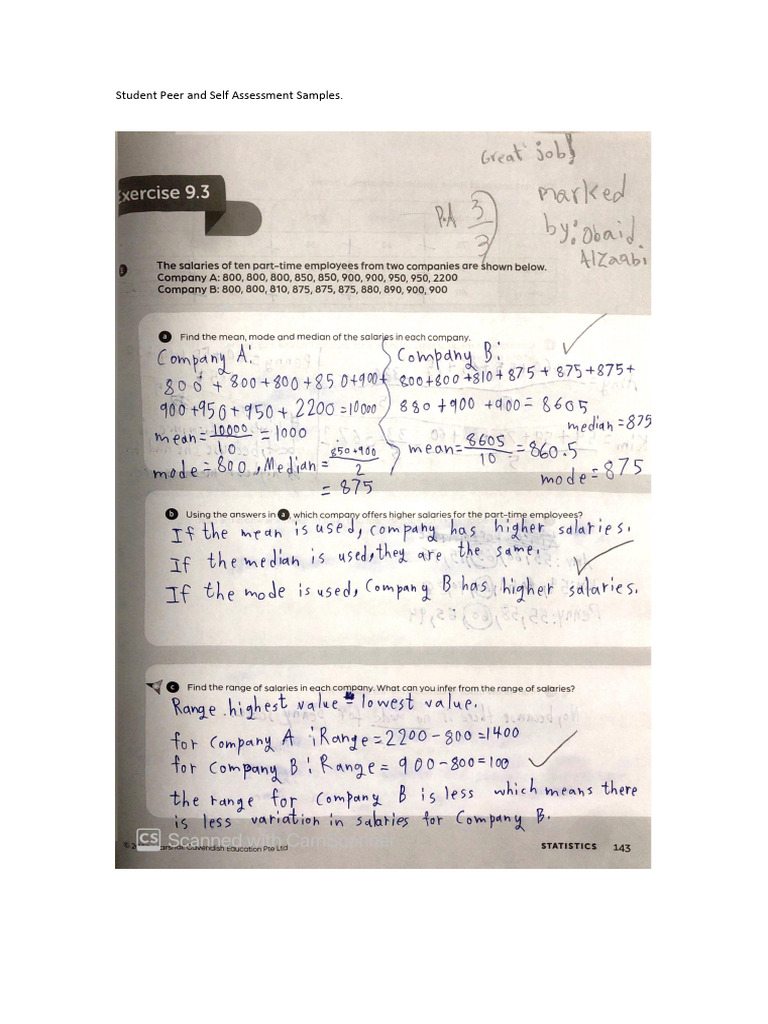 Student Peer and Self Assessment Samples.
Great job!
Exercise 9.3
P.A 3/3
marked
by: Obaid
AlZaabi
The salaries of ten part-time employees from two companies are shown below.
Company A: 800, 800, 800, 850, 850, 900, 900, 950, 950, 2200
Company B: 800, 800, 810, 875, 875, 875, 880, 890, 900, 900
a Find the mean, mode and median of the salaries in each company.
Company A:
800 + 800+800+850+900+
900+950+950+2200=10000
mean=10000/10=1000
mode=800, Median=850+900/2
=875
Company B:
800+800+810+875+875+875+
880+900+900=8605
median=875
mean=8605/10=860.5
mode=875
b Using the answers in a, which company offers higher salaries for the part-time employees?
If the mean is used, company has higher salaries.
If the median is used, they are the same.
If the mode is used, Company B has higher salaries.
c Find the range of salaries in each company. What can you infer from the range of salaries?
Range.highest value - lowest value.
for Company A :Range=2200-800=1400
for Company B: Range= 900-800=100
the range for Company B is less which means there
is less variation in salaries for Company B.
CS Scanned with CamScanner
Cavendish Education Pte Ltd
STATISTICS 143